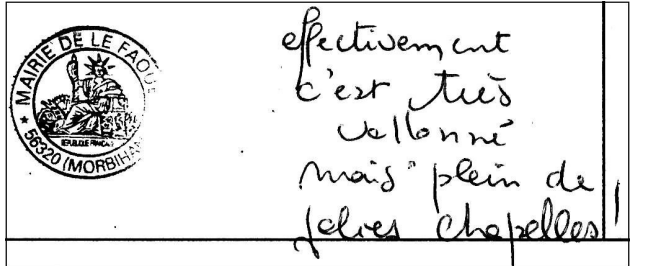 MAIRIE DE LE FAOU
★ 56320 (MORBIHAN
REPUBLIQUE FRANCAI
effectivement
c'est très
vallonné
mais plein de
jolies chapelles !